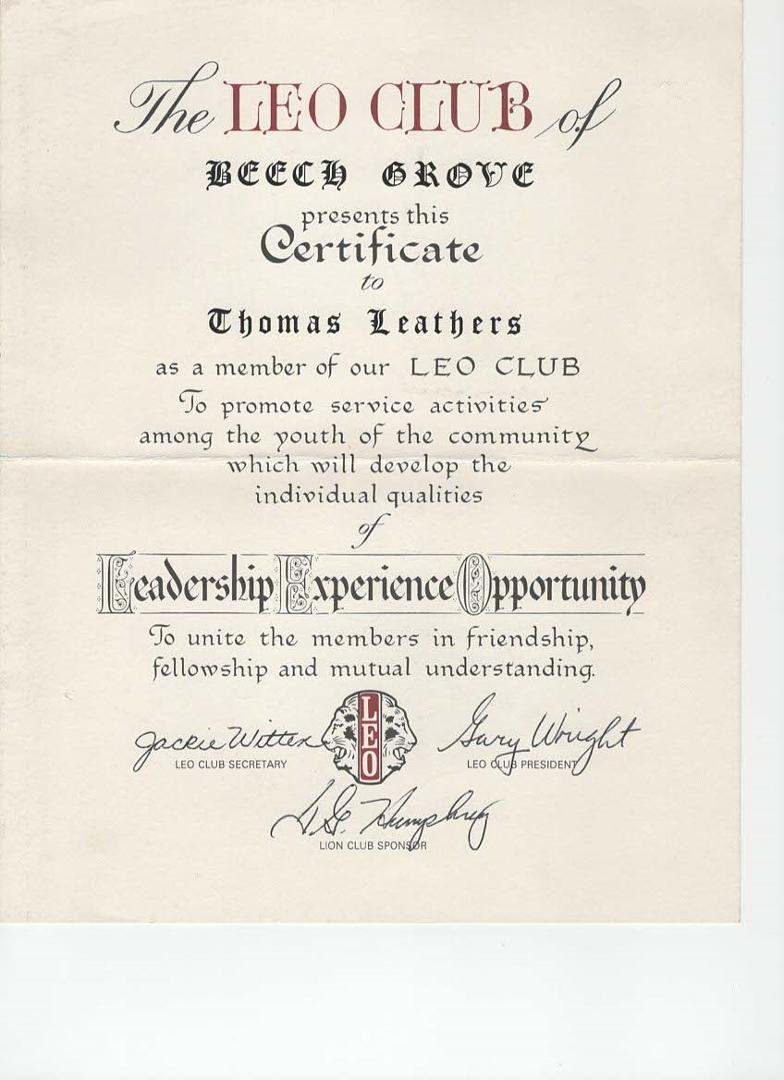 The LEO CLUB of
BEECH GROVE
presents this
Certificate
to
Thomas Leathers
as a member of our LEO CLUB
To promote service activities
among the youth of the community
which will develop the
individual qualities
of
Leadership Experience Opportunity
To unite the members in friendship,
fellowship and mutual understanding.
LEO
Jackie Witten
LEO CLUB SECRETARY
Gary Wright
LEO CLUB PRESIDENT
Humphrey
LION CLUB SPONSOR